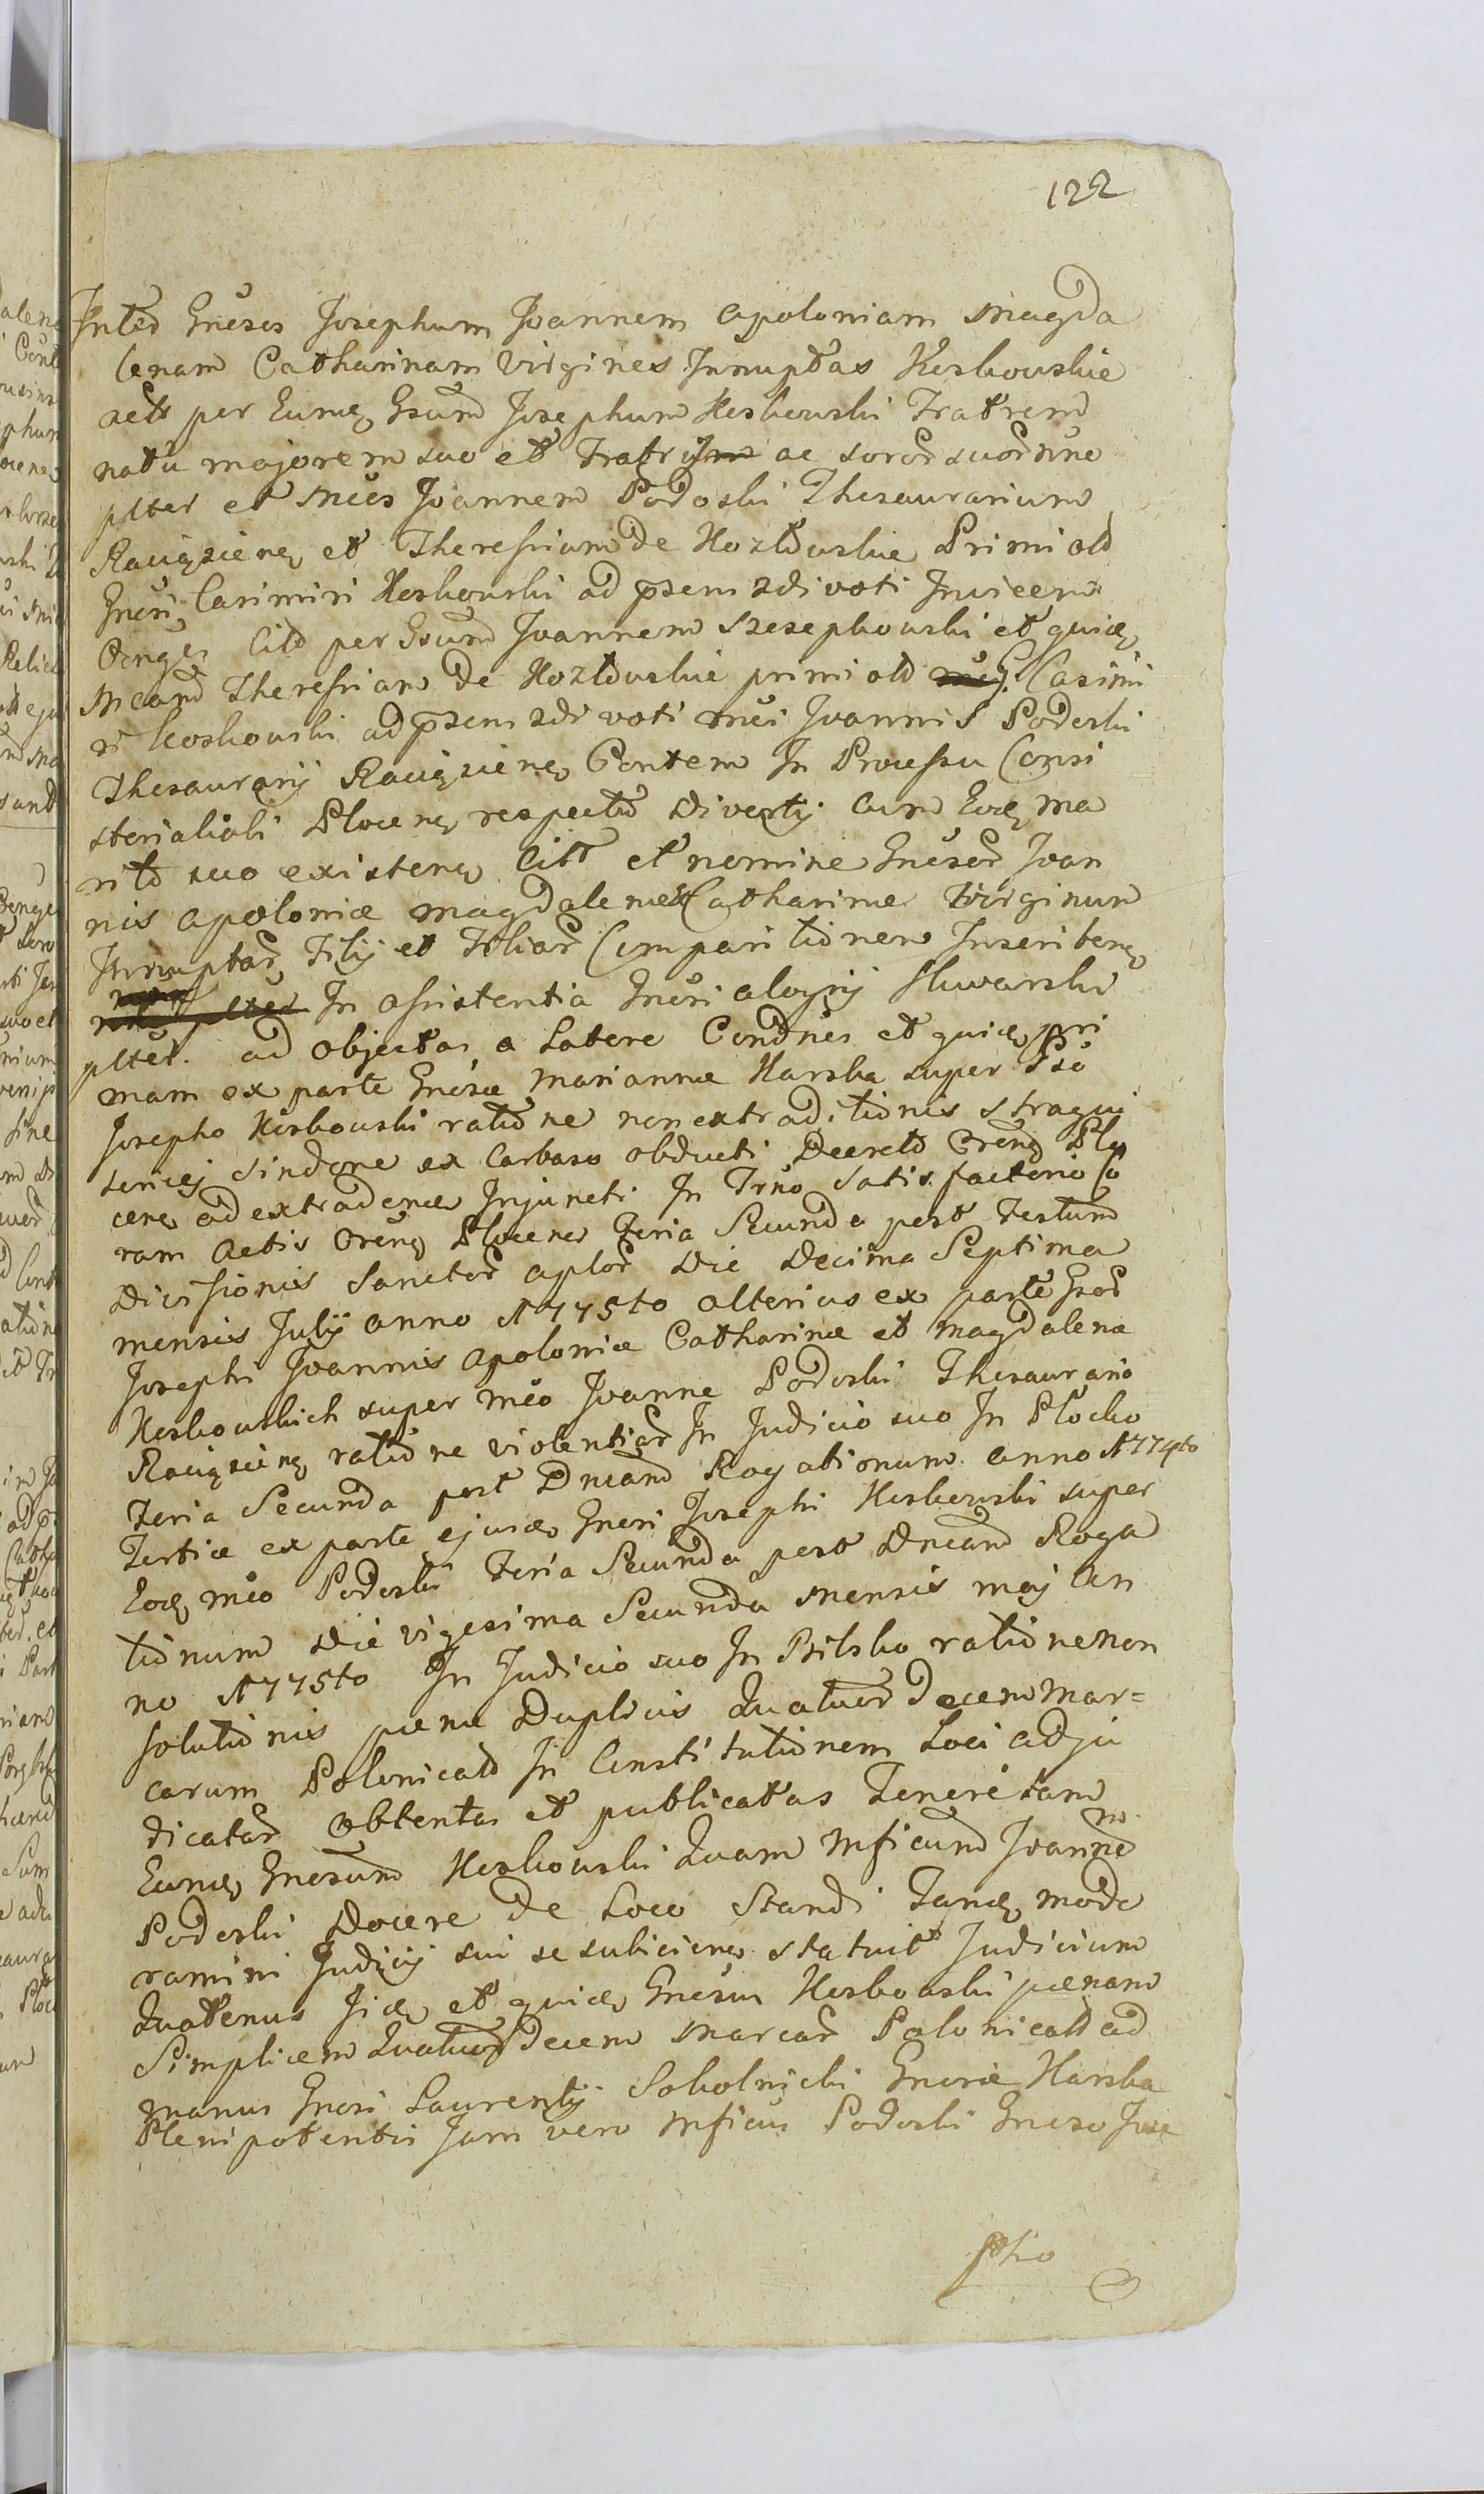 122
Inter Gnesos Josephum Joannem Apoloniam Magda
lenam Catharinam Virgines Innuptas Koskowskie
per Eund Gsum Josephum Koskowski Fratrem
natu majorem suo et Fratris ac soror suor nne
ptter et Mcos Joannem Podoski Thesaurarium
Raciązienę et Theressiam de Kozłowskie Primi olim
Gnesi Casimiri Koskowski ad psens 2di voti Invicem
Conges Cito per Gsum Joannem Szczepkowski et quidę
Mcam Theressiam de Kozłowskie primi olim Casimi
ri Koskowski ad psens 2di voti Mci Joannis Podoski
Thesaurarij Raciązienę Contem In Processu Consi
storialiali Plocenę respectu Divortij cum Eodę ma
rito suo existenę Cito et nomine Gnesor Joan
nis Apoloniæ Magdalenæ Catharinæ Virginum
Innuptar, Filij et Filiar Comparitionem Inscribenę
In Assistentia Gnesi Aloysij Sliwarski
ptter. ad objectas a Latere Condnes et quidę pri
mam ex parte Gnesæ Mariannæ Karska super Gso
Josepho Koskowski ratione non extraditionis stragui
sericej Sindone ex Carbaso obducti Decreto Oreng Plo
cenę ad extradendę Injuncti In Trno Satisfactorio Co
ram Actis Oreng Plocenę Feria Secunda post Festum
Divisionis Sanctor Aplor Die Decima Septima
mensis Julij Anno 1775to alterius ex parte Gsor
Josephi Joannis Apoloniæ Catharinæ et Magdalenæ
Koskowskich super Mco Joanne Podoski Thesaurario
Raciązienę ratione violentiar In Judicio suo In Plocko
Feria Secunda post Dnicam Rogationum Anno 1774to
Tertiæ ex parte ejusdę Gnesi Josephi Koskowski super
Eodę Mco Podoski Feria Secunda post Dnicam Roga
tionum Die vigesima Secunda Mensis Maj An
no 1775to In Judicio suo In Bilsko ratione non
solutionis pænæ Duplicis Quatuor Decem Mar=
carum Polonicalium In Constitutionem Loci Adju
dicatar obtentas et publicatas Tenere tam
Eundę Gnesum Koskowski Quam Mficum Joannem
Podoski Docere de Loco Standi Tandę mode
ramini Judicij sui se subjiciendę statuit Judicium
Quatenus Jidę et quidę Gnesus Koskowski pænam
Simplicem Quatuor Decem Marcar Polonicalium ad
manus Gnesi Laurentij Sokolnicki Gnesæ Karska
Plenipotentis Jam vero Mficus Podoski Gneso Jose
pho